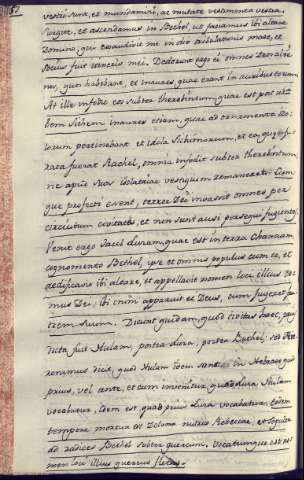 vestri sunt, et mundamini, ac mutate vestimenta vestra.
Surgite, et ascendamus in Bethel, ut faciamus ibi altare
Domino, qui exaudivit me in die tribulationis meae, et
socius fuit itineris mei. Dederunt ergo ei omnes Deos alie
nos, quos habebant, et inaures quae erant in auribus eorum,
At ille infodit eos subter therebintum, quae est post urbem
Sichem inaures etiam, quae ad ornamenta ido
lorum pertinebant et idola Sichimorum, et ea, quae fu
rata fuerat Rachel, omnia infodit subter therebintum
ne apud suos idolatriae vestigium remaneret. Cum
que profecti essent, terror Dei invasit omnes per
circuitum civitates, et non sunt ausi persequi fugientes
Venit ergo Jacob Luzam, quae est in terra Chanaam
cognomento Bethel, ipse et omnis populus cum eo, et
aedificavit ibi altare, et appellavit nomen loci illius Do
mus Dei, ibi enim apparuit ei Deus, cum fugeret fra
trem suum. Dicunt quidam, quod civitas haec, prius
dicta fuit Hulam, postea Luza, postea Bethel, sed Hie
ronimus dicit, quod Hulam in Hebraeo
prius, vel ante, et cum invenitur, quod Luza Hulam
vocabatur, idem est quod prius Luza vocabatur. Eodem
tempore mortua est Delbora nutrix Rebeccae, et sepulta
ad radices Bethel subter quercum. Vocatumque est no
men loci illius quercus fletus.